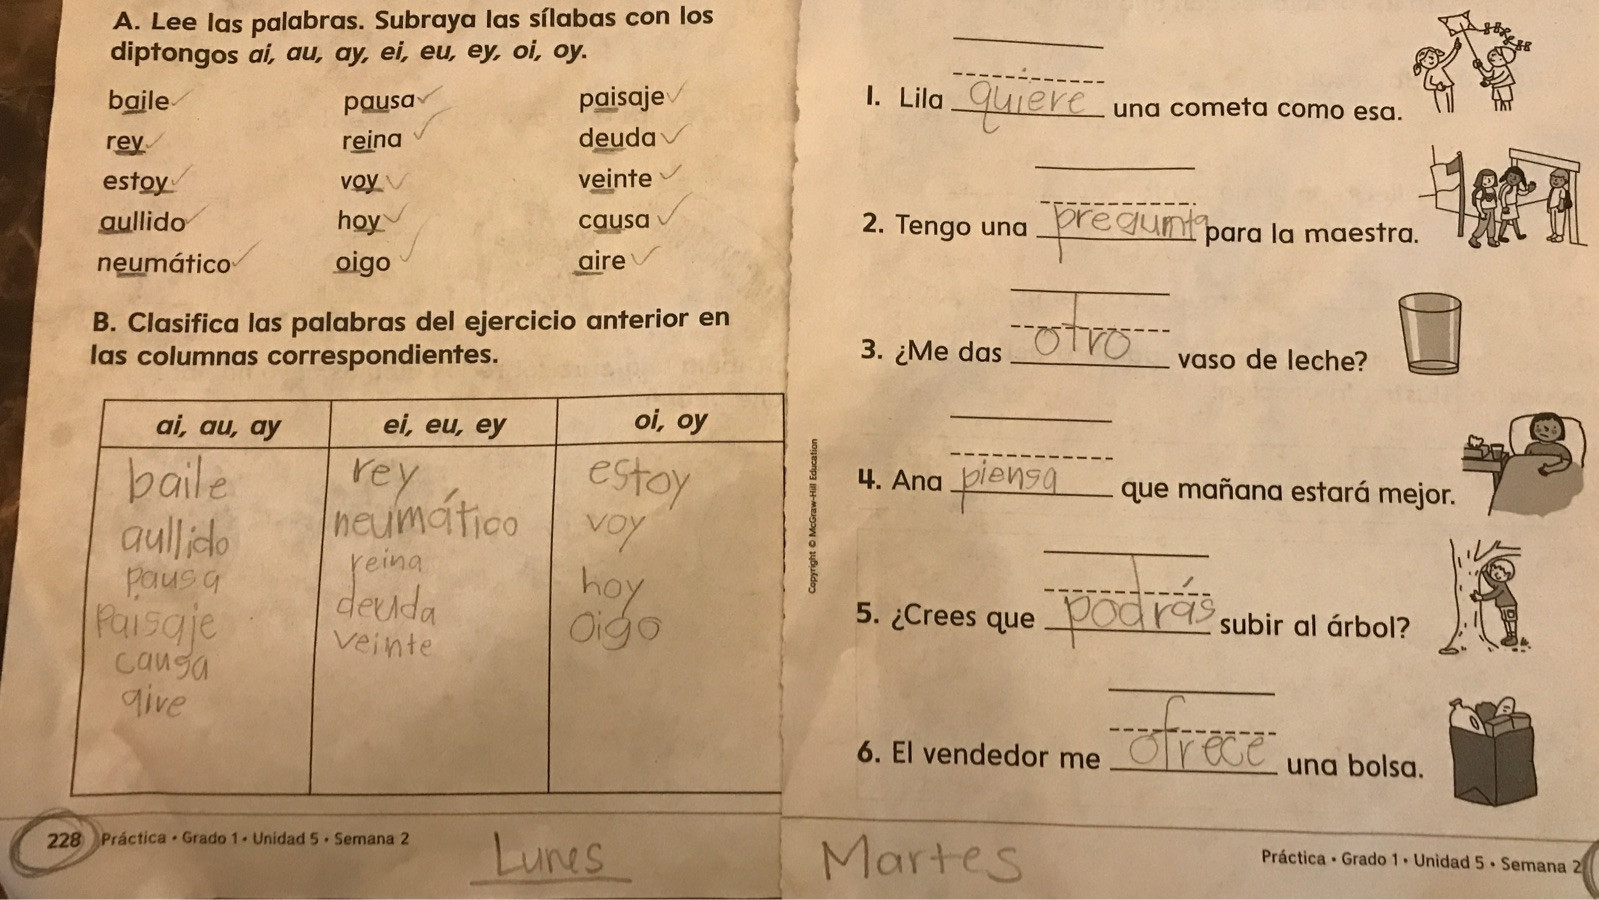 A. Lee las palabras. Subraya las sílabas con los
diptongos ai, au, ay, ei, eu, ey, oi, oy.
baile pausa paisaje
rey reina deuda
estoy voy veinte
aullido hoy causa
neumático oigo aire
B. Clasifica las palabras del ejercicio anterior en
las columnas correspondientes.
ai, au, ay ei, eu, ey oi, oy
baile rey estoy
aullido neumático voy
pausa reina hoy
Paisaje deuda Oigo
causa veinte
aire
228 Práctica • Grado 1 • Unidad 5 • Semana 2
Lunes
1. Lila quiere una cometa como esa.
2. Tengo una pregunta para la maestra.
3. ¿Me das otro vaso de leche?
4. Ana piensa que mañana estará mejor.
5. ¿Crees que podrás subir al árbol?
6. El vendedor me ofrece una bolsa.
Copyright © McGraw-Hill Education
Martes
Práctica • Grado 1 • Unidad 5 • Semana 2